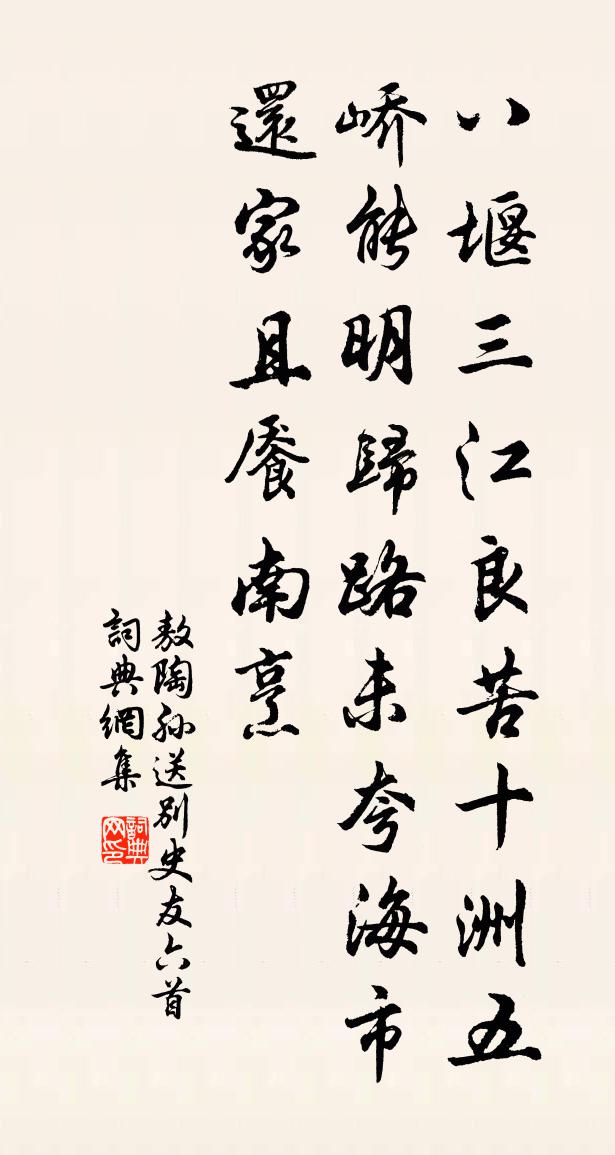 八堰三江良苦十洲五
嶠能明歸路未夸海市
還家且饜南烹
敖陶孫送別史友六首
詞典網集
詞典
网印